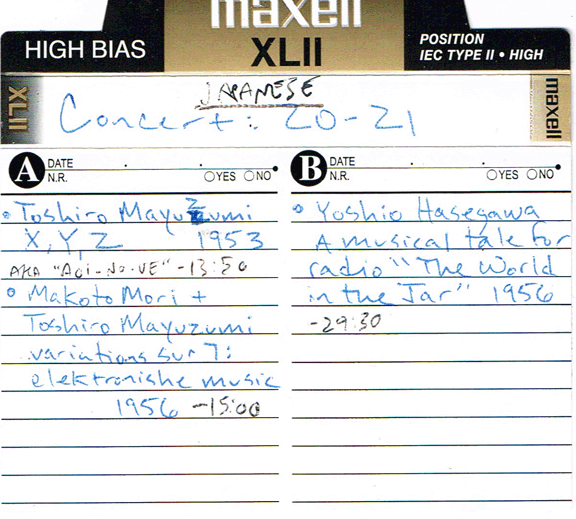 maxell
HIGH BIAS
XLII
POSITION
IEC TYPE II • HIGH
JAPANESE
Concert: 20-21
XLII
maxell
A DATE . .
N.R. ○YES ○NO
• Toshiro Mayuzumi
X, Y, Z 1953
AKA "AOI-NO-UE" -13:50
• Makoto Mori +
Toshiro Mayuzumi
variations sur 7:
elektronishe music
1956 -15:00
B DATE . .
N.R. ○YES ○NO
• Yoshio Hasegawa
A musical tale for
radio "The World
in the Jar" 1956
-29:30